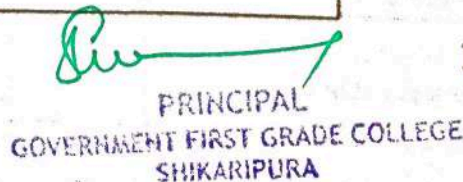 PRINCIPAL
GOVERNMENT FIRST GRADE COLLEGE
SHIKARIPURA